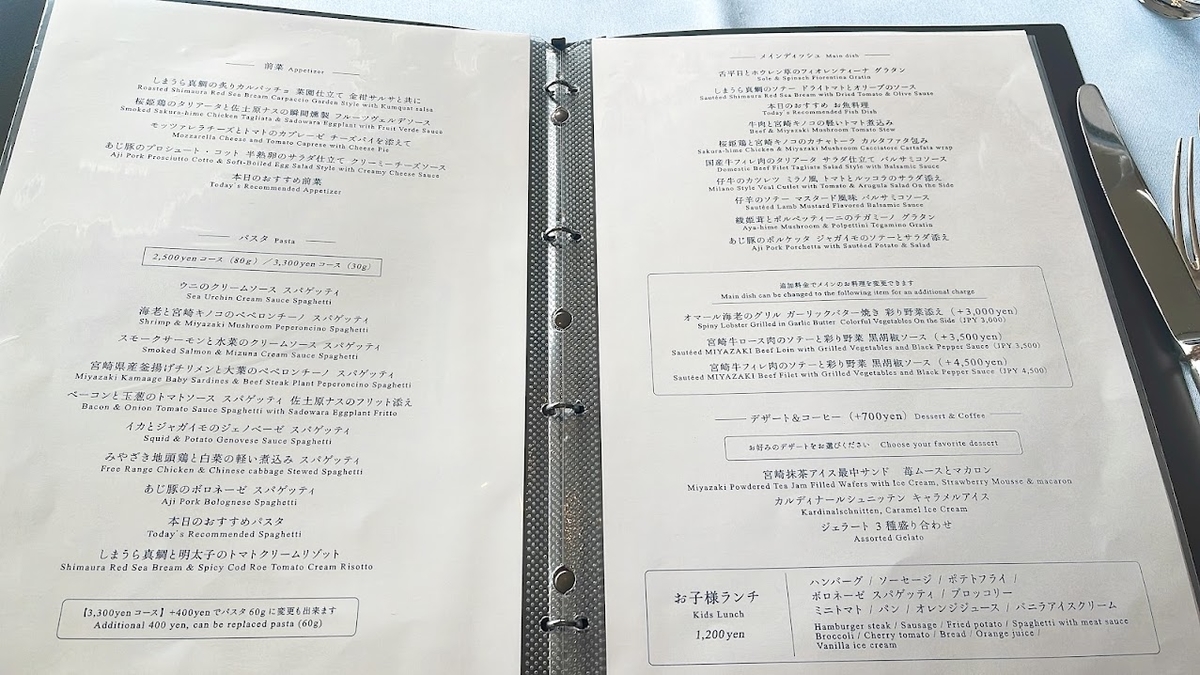 前菜 Appetizer
しまうら真鯛の炙りカルパッチョ 菜園仕立て 金柑サルサと共に
Roasted Shimaura Red Sea Bream Carpaccio Garden Style with Kumquat salsa
桜姫鶏のタリアータと佐土原ナスの瞬間燻製 フルーツヴェルデソース
Smoked Sakura-hime Chicken Tagliata & Sadowara Eggplant with Fruit Verde Sauce
モッツァレラチーズとトマトのカプレーゼ チーズパイを添えて
Mozzarella Cheese and Tomato Caprese with Cheese Pie
あじ豚のプロシュート・コット 半熟卵のサラダ仕立て クリーミーチーズソース
Aji Pork Prosciutto Cotto & Soft-Boiled Egg Salad Style with Creamy Cheese Sauce
本日のおすすめ前菜
Today's Recommended Appetizer
パスタ Pasta
2,500yenコース（80g）／3,300yenコース（30g）
ウニのクリームソース スパゲッティ
Sea Urchin Cream Sauce Spaghetti
海老と宮崎キノコのペペロンチーノ スパゲッティ
Shrimp & Miyazaki Mushroom Peperoncino Spaghetti
スモークサーモンと水菜のクリームソース スパゲッティ
Smoked Salmon & Mizuna Cream Sauce Spaghetti
宮崎県産釜揚げチリメンと大葉のペペロンチーノ スパゲッティ
Miyazaki Kamaage Baby Sardines & Beef Steak Plant Peperoncino Spaghetti
ベーコンと玉葱のトマトソース スパゲッティ 佐土原ナスのフリット添え
Bacon & Onion Tomato Sauce Spaghetti with Sadowara Eggplant Fritto
イカとジャガイモのジェノベーゼ スパゲッティ
Squid & Potato Genovese Sauce Spaghetti
みやざき地頭鶏と白菜の軽い煮込み スパゲッティ
Free Range Chicken & Chinese cabbage Stewed Spaghetti
あじ豚のボロネーゼ スパゲッティ
Aji Pork Bolognese Spaghetti
本日のおすすめパスタ
Today's Recommended Spaghetti
しまうら真鯛と明太子のトマトクリームリゾット
Shimaura Red Sea Bream & Spicy Cod Roe Tomato Cream Risotto
【3,300yenコース】+400yenでパスタ60gに変更も出来ます
Additional 400 yen, can be replaced pasta (60g)
メインディッシュ Main dish
舌平目とホウレン草のフィオレンティーナ グラタン
Sole & Spinach Fiorentina Gratin
しまうら真鯛のソテー ドライトマトとオリーブのソース
Sautéed Shimaura Red Sea Bream with Dried Tomato & Olive Sauce
本日のおすすめ お魚料理
Today's Recommended Fish Dish
牛肉と宮崎キノコの軽いトマト煮込み
Beef & Miyazaki Mushroom Tomato Stew
桜姫鶏と宮崎キノコのカチャトーラ カルタファタ包み
Sakura-hime Chicken & Miyazaki Mushroom Cacciatore Cartafata wrap
国産牛フィレ肉のタリアータ サラダ仕立て バルサミコソース
Domestic Beef Filet Tagliata Salad Style with Balsamic Sauce
仔牛のカツレツ ミラノ風 トマトとルッコラのサラダ添え
Milano Style Veal Cutlet with Tomato & Arugula Salad On the Side
仔羊のソテー マスタード風味 バルサミコソース
Sautéed Lamb Mustard Flavored Balsamic Sauce
綾姫茸とポルペッティーニのテガミーノ グラタン
Aya-hime Mushroom & Polpettini Tegamino Gratin
あじ豚のポルケッタ ジャガイモのソテーとサラダ添え
Aji Pork Porchetta with Sautéed Potato & Salad
追加料金でメインのお料理を変更できます
Main dish can be changed to the following item for an additional charge
オマール海老のグリル ガーリックバター焼き 彩り野菜添え（+3,000yen）
Spiny Lobster Grilled in Garlic Butter Colorful Vegetables On the Side (JPY 3,000)
宮崎牛ロース肉のソテーと彩り野菜 黒胡椒ソース（+3,500yen）
Sautéed MIYAZAKI Beef Loin with Grilled Vegetables and Black Pepper Sauce (JPY 3,500)
宮崎牛フィレ肉のソテーと彩り野菜 黒胡椒ソース（+4,500yen）
Sautéed MIYAZAKI Beef Filet with Grilled Vegetables and Black Pepper Sauce (JPY 4,500)
デザート&コーヒー（+700yen） Dessert & Coffee
お好みのデザートをお選びください Choose your favorite dessert
宮崎抹茶アイス最中サンド 苺ムースとマカロン
Miyazaki Powdered Tea Jam Filled Wafers with Ice Cream, Strawberry Mousse & macaron
カルディナールシュニッテン キャラメルアイス
Kardinalschnitten, Caramel Ice Cream
ジェラート 3 種盛り合わせ
Assorted Gelato
お子様ランチ
Kids Lunch
1,200yen
ハンバーグ / ソーセージ / ポテトフライ /
ボロネーゼ スパゲッティ / ブロッコリー
ミニトマト / パン / オレンジジュース / バニラアイスクリーム
Hamburger steak / Sausage / Fried potato / Spaghetti with meat sauce
Broccoli / Cherry tomato / Bread / Orange juice /
Vanilla ice cream